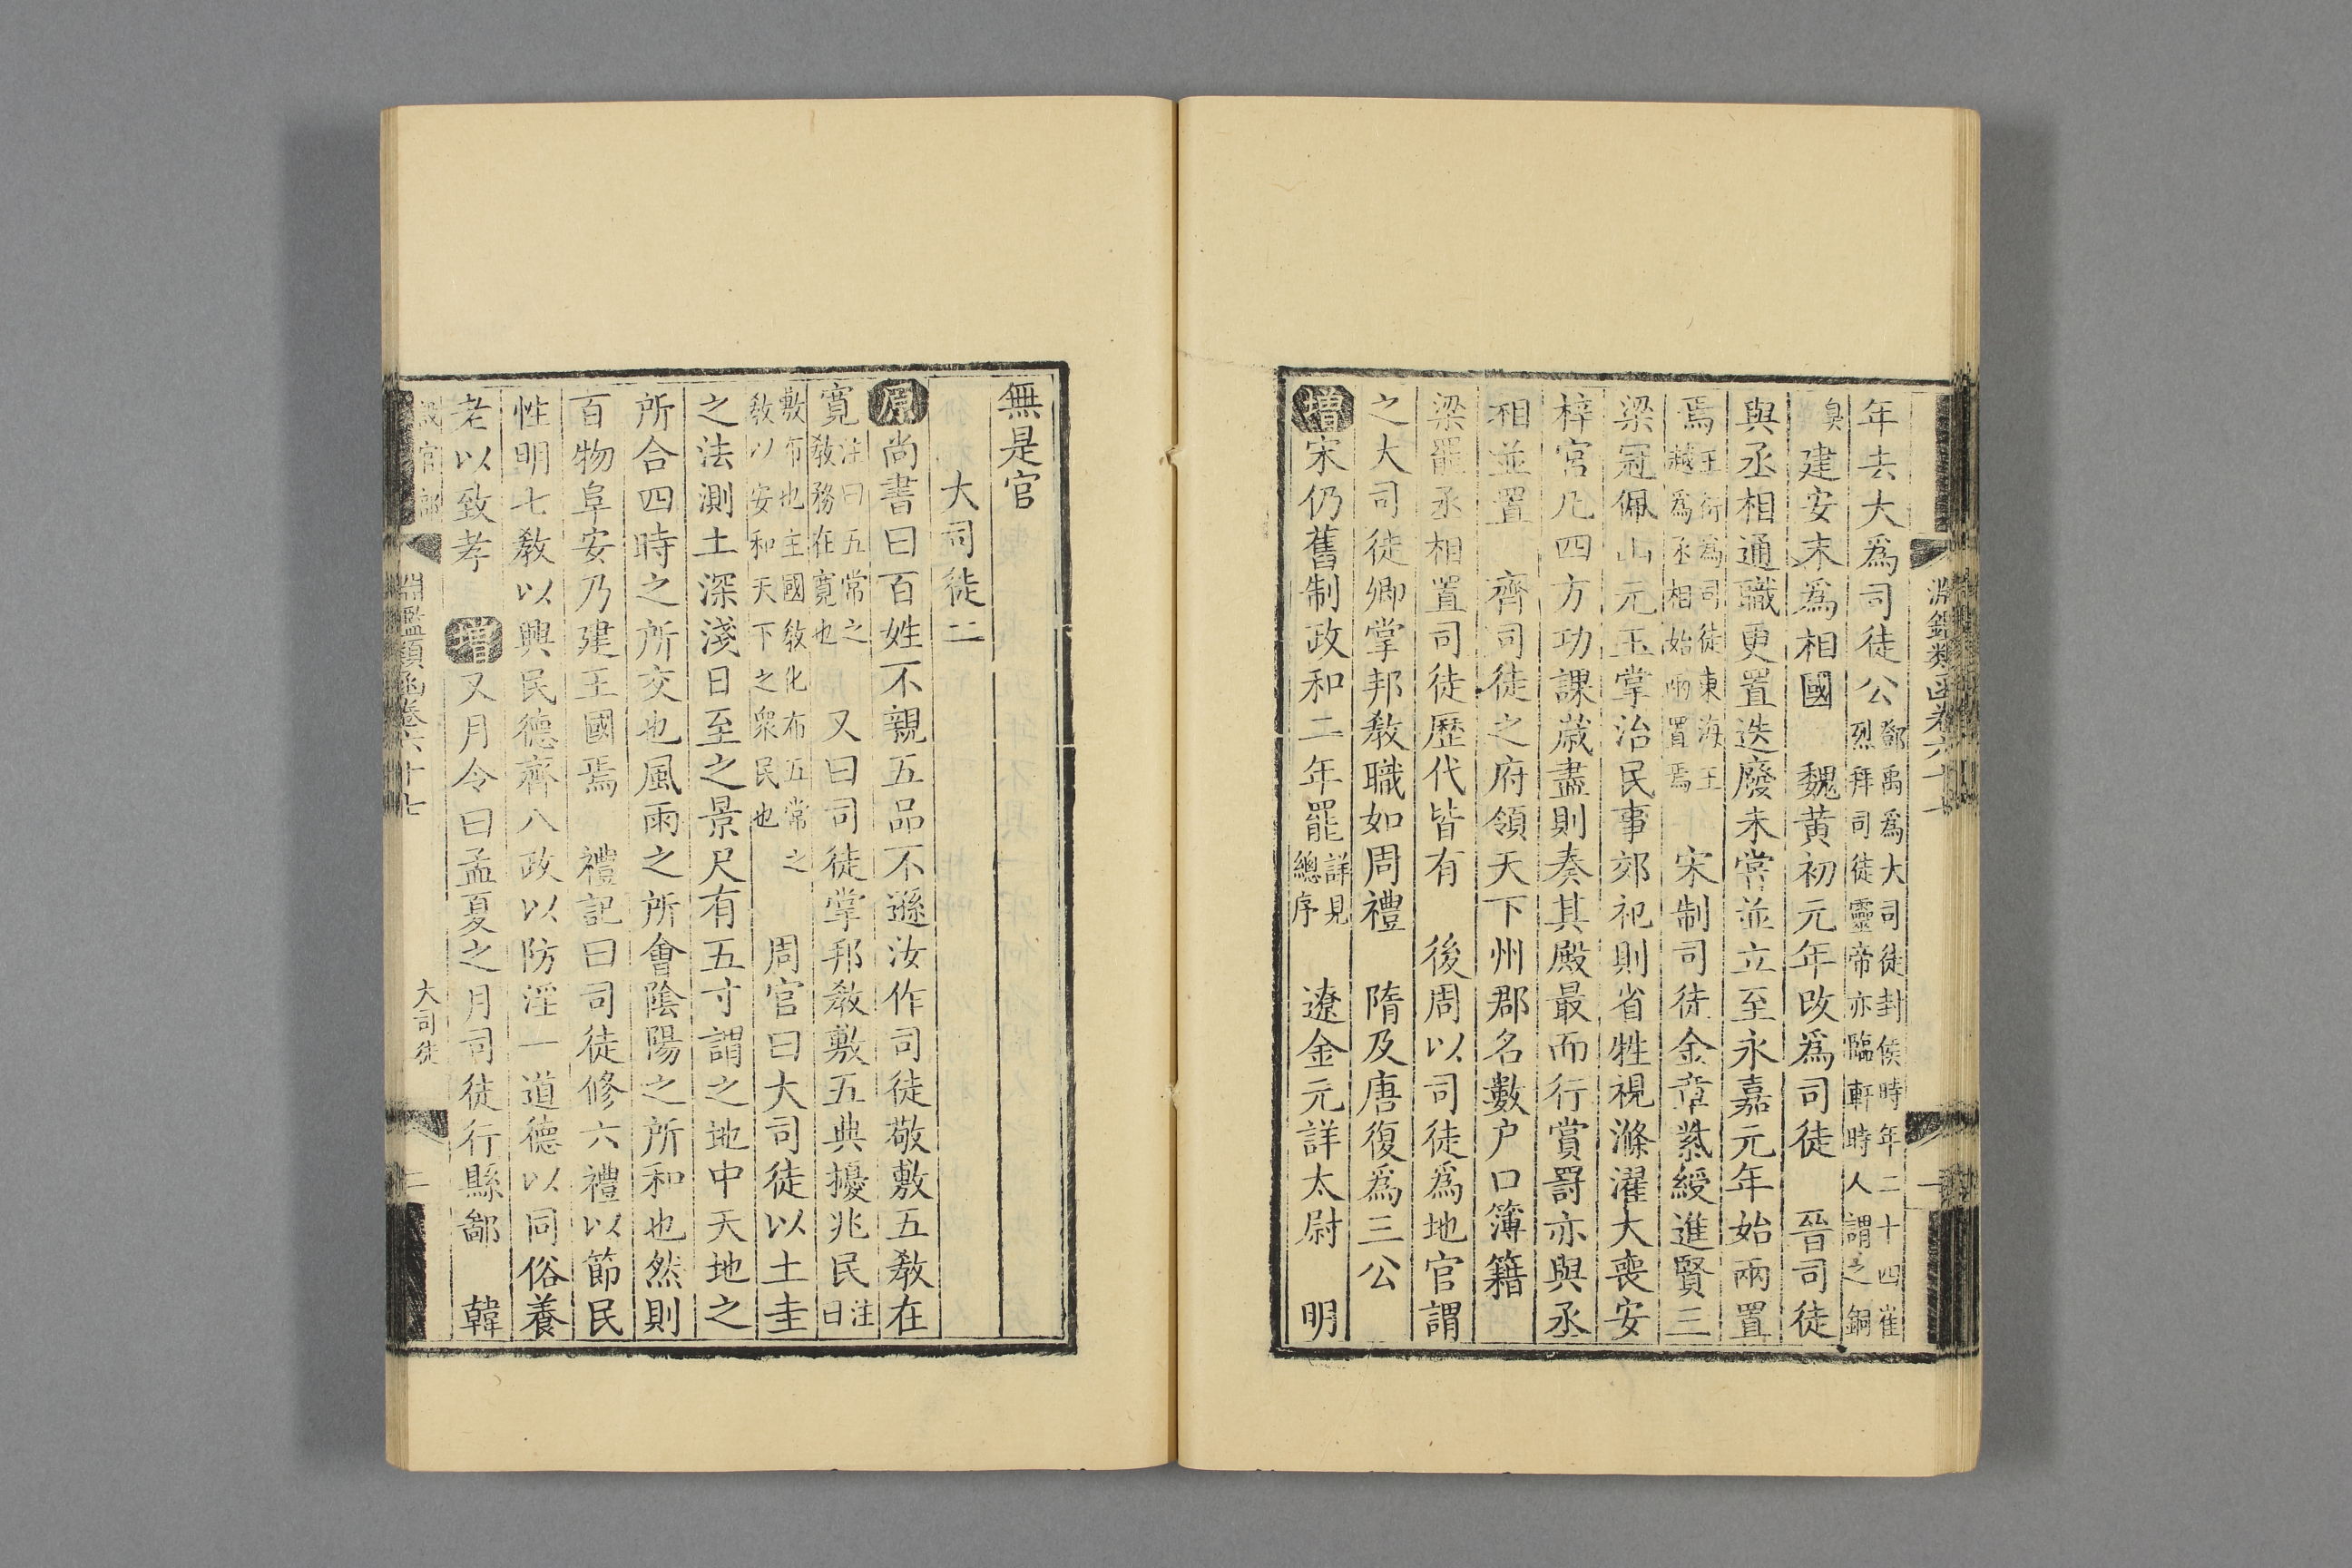 淵鑑類函卷六十七
年去大爲司徒公鄧禹爲大司徒封侯時年二十四崔烈拜司徒靈帝亦臨軒時人謂之銅
臭建安末爲相國　魏黃初元年改爲司徒　晉司徒
與丞相通職更置迭廢未常並立至永嘉元年始兩置
焉王衍爲司徒東海王越爲丞相始兩置焉　宋制司徒金章紫綬進賢三
梁冠佩山元玉掌治民事郊祀則省牲視滌濯大喪安
梓宮凡四方功課歲盡則奏其殿最而行賞罰亦與丞
相並置　齊司徒之府領天下州郡名數户口簿籍
梁罷丞相置司徒歷代皆有　後周以司徒爲地官謂
之大司徒卿掌邦敎職如周禮　隋及唐復爲三公
增宋仍舊制政和二年罷詳見總序　遼金元詳太尉　明
無是官
大司徒二
原尚書曰百姓不親五品不遜汝作司徒敬敷五敎在
寬注曰五常之敎務在寬也　又曰司徒掌邦敎敷五典擾兆民注曰
敷布也主國敎化布五常之敎以安和天下之衆民也　周官曰大司徒以土圭
之法測土深淺日至之景尺有五寸謂之地中天地之
所合四時之所交也風雨之所會陰陽之所和也然則
百物阜安乃建王國焉　禮記曰司徒修六禮以節民
性明七敎以興民德齊八政以防淫一道德以同俗養
老以致孝　增又月令曰孟夏之月司徒行縣鄙　韓
設官部
淵鑑類函卷六十七
大司徒
二